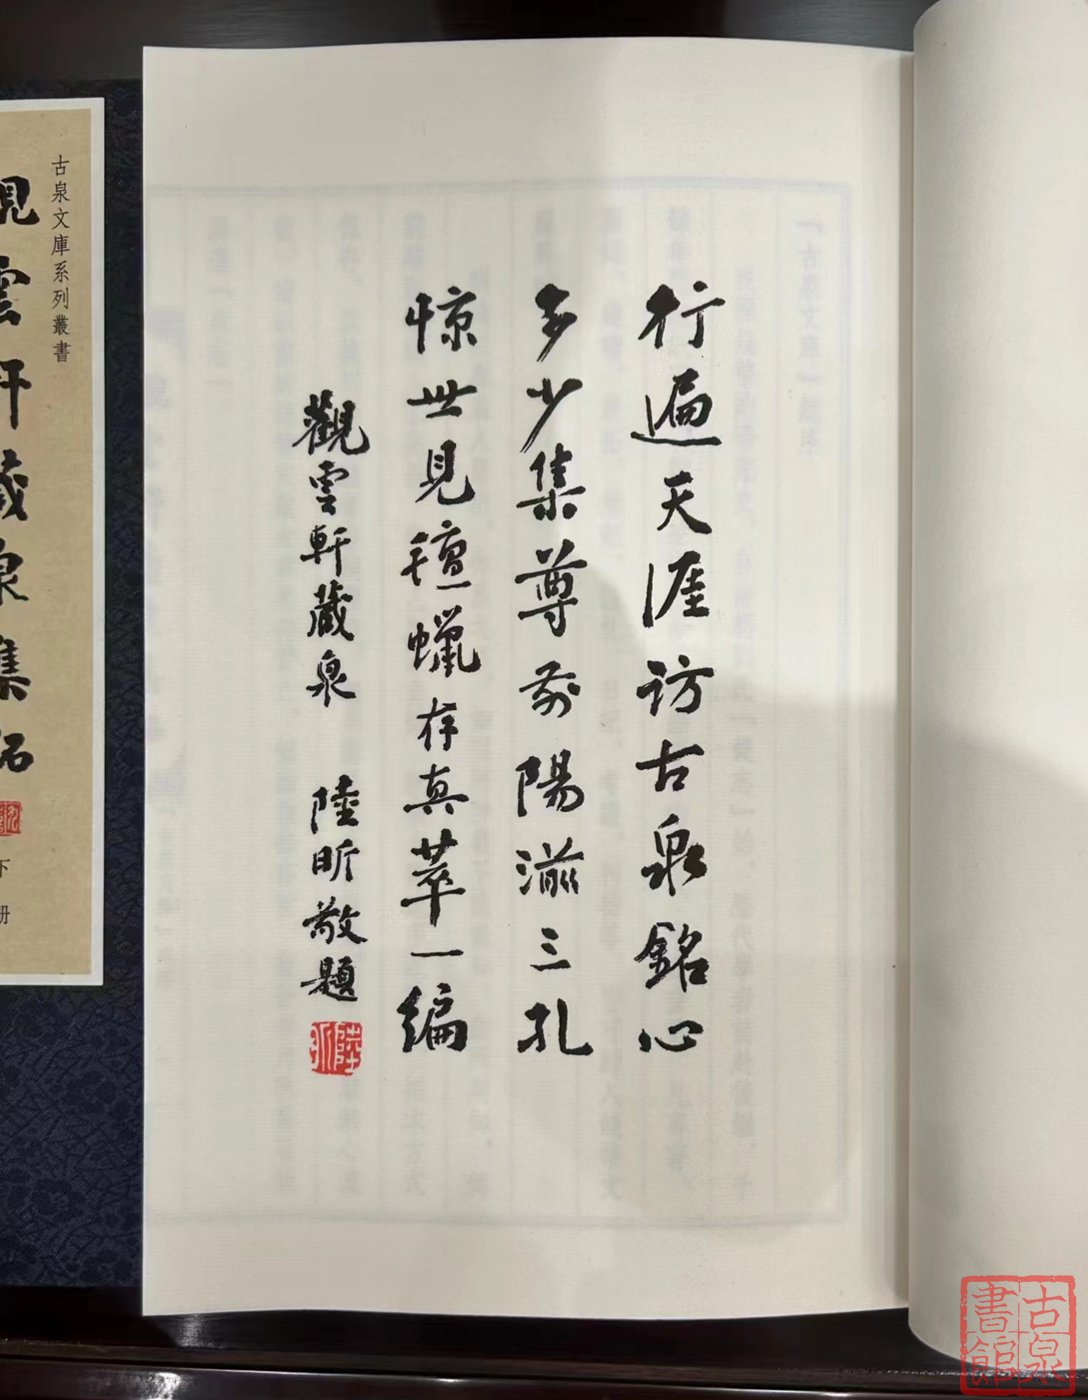 行遍天涯访古泉銘心
多少集尊前陽湔三孔
惊世見氈蠟存真萃一编
觀雲軒藏泉 陸昕敬題
陸昕
古泉文庫系列叢書
觀雲軒藏泉集拓
下册
古泉書館